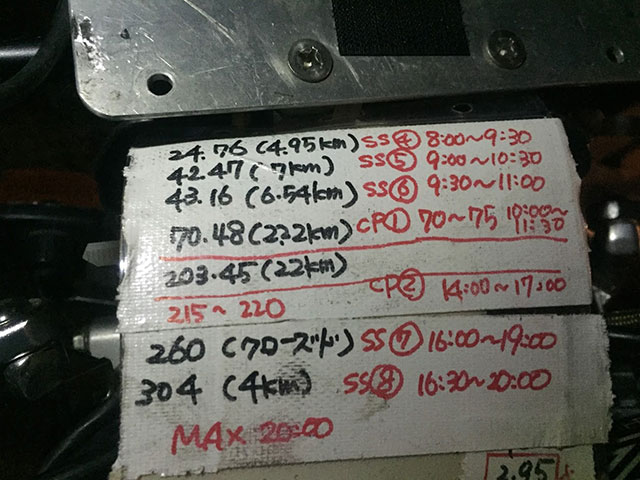 24.76 (4.95km) SS④ 8:00~9:30
42.47 (7km) SS⑤ 9:00~10:30
43.16 (6.54km) SS⑥ 9:30~11:00
70.48 (2.22km) CP① 70~75 10:00~11:30
203.45 (22km)
CP② 14:00~17:00
215~220
260 (クローズド) SS⑦ 16:00~19:00
304 (4km) SS⑧ 16:30~20:00
MAX 20:00
2.95